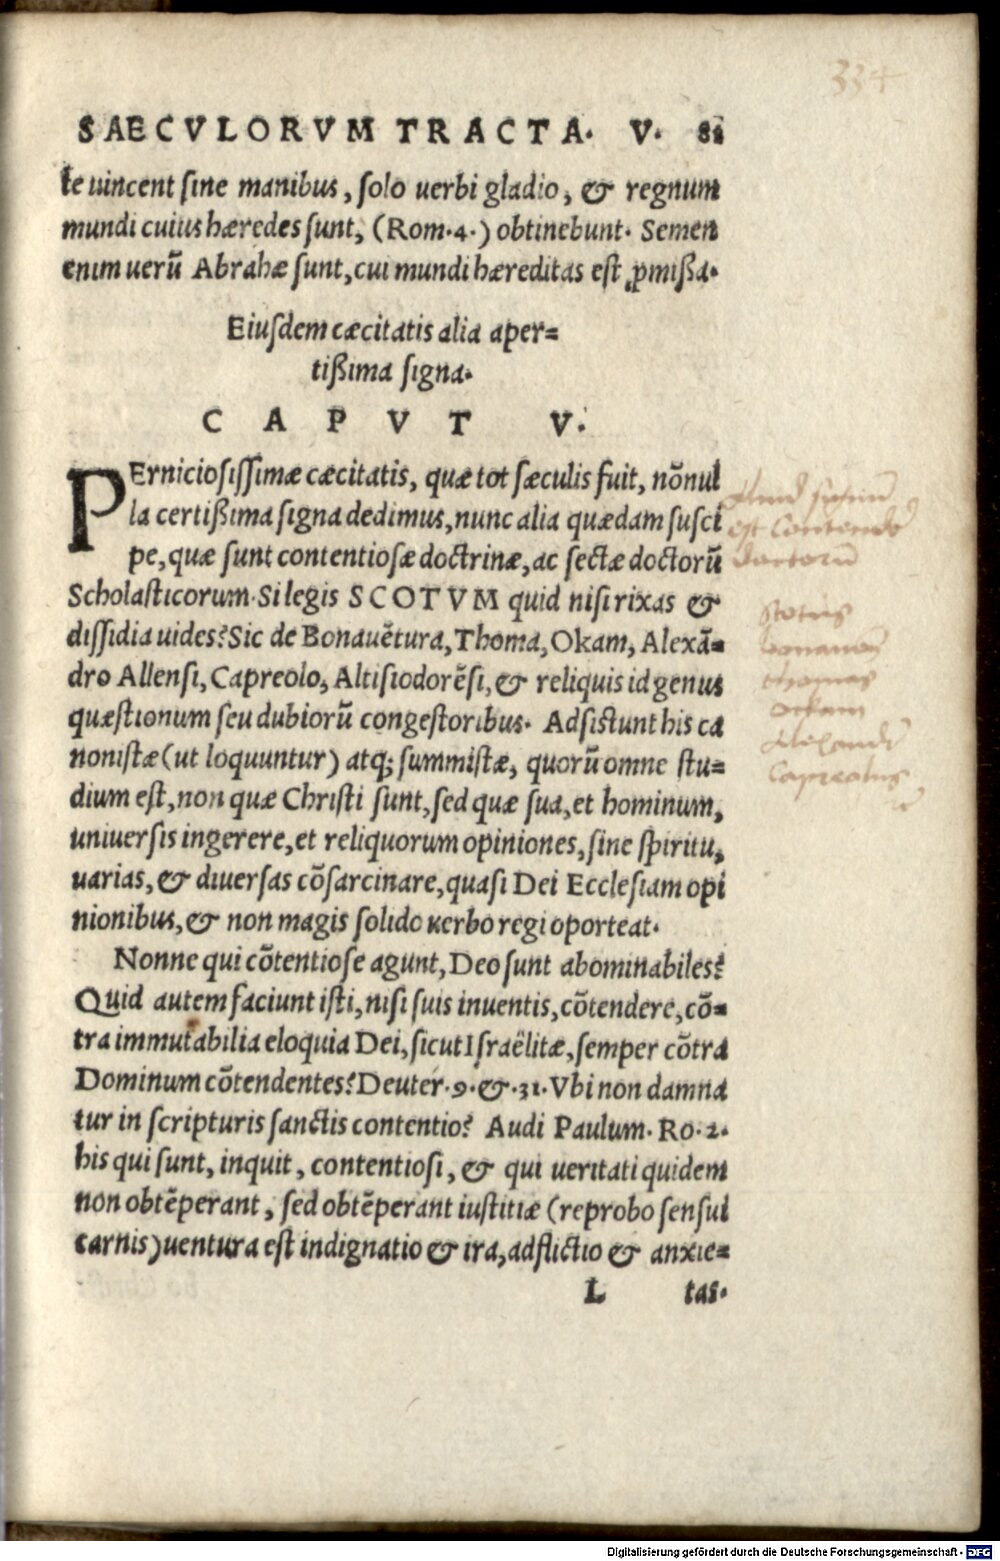 334
SAECVLORVM TRACTA. V. 81
te uincent sine manibus, solo uerbi gladio, & regnum
mundi cuius hæredes sunt, (Rom.4.) obtinebunt. Semen
enim uerū Abrahæ sunt, cui mundi hæreditas est ꝓmißa.
Eiusdem cæcitatis alia aper=
tißima signa.
CAPVT V.
PErniciosissimæ cæcitatis, quæ tot sæculis fuit, nōnul
la certißima signa dedimus, nunc alia quædam susci
pe, quæ sunt contentiosæ doctrinæ, ac sectæ doctorū
Scholasticorum. Si legis SCOTVM quid nisi rixas &
dissidia uides? Sic de Bonauētura, Thoma, Okam, Alexā=
dro Allensi, Capreolo, Altisiodorēsi, & reliquis id genus
quæstionum seu dubiorū congestoribus. Adsistunt his ca
nonistæ (ut loquuntur) atq; summistæ, quorū omne stu=
dium est, non quæ Christi sunt, sed quæ sua, et hominum,
uniuersis ingerere, et reliquorum opiniones, sine spiritu,
uarias, & diuersas cōsarcinare, quasi Dei Ecclesiam opi
nionibus, & non magis solido uerbo regi oporteat.
Nonne qui cōtentiose agunt, Deo sunt abominabiles?
Quid autem faciunt isti, nisi suis inuentis, cōtendere, cō=
tra immutabilia eloquia Dei, sicut Israëlitæ, semper cōtra
Dominum cōtendentes? Deuter.9.&.31. Vbi non damna
tur in scripturis sanctis contentio? Audi Paulum. Ro.2.
his qui sunt, inquit, contentiosi, & qui ueritati quidem
non obtēperant, sed obtēperant iustitiæ (reprobo sensui
carnis) uentura est indignatio & ira, adflictio & anxie=
L tas.
est Contentio
doctorū
Scotus
bonauen
thomas
ockam
Alexandr
Capreolus
Digitalisierung gefördert durch die Deutsche Forschungsgemeinschaft - DFG